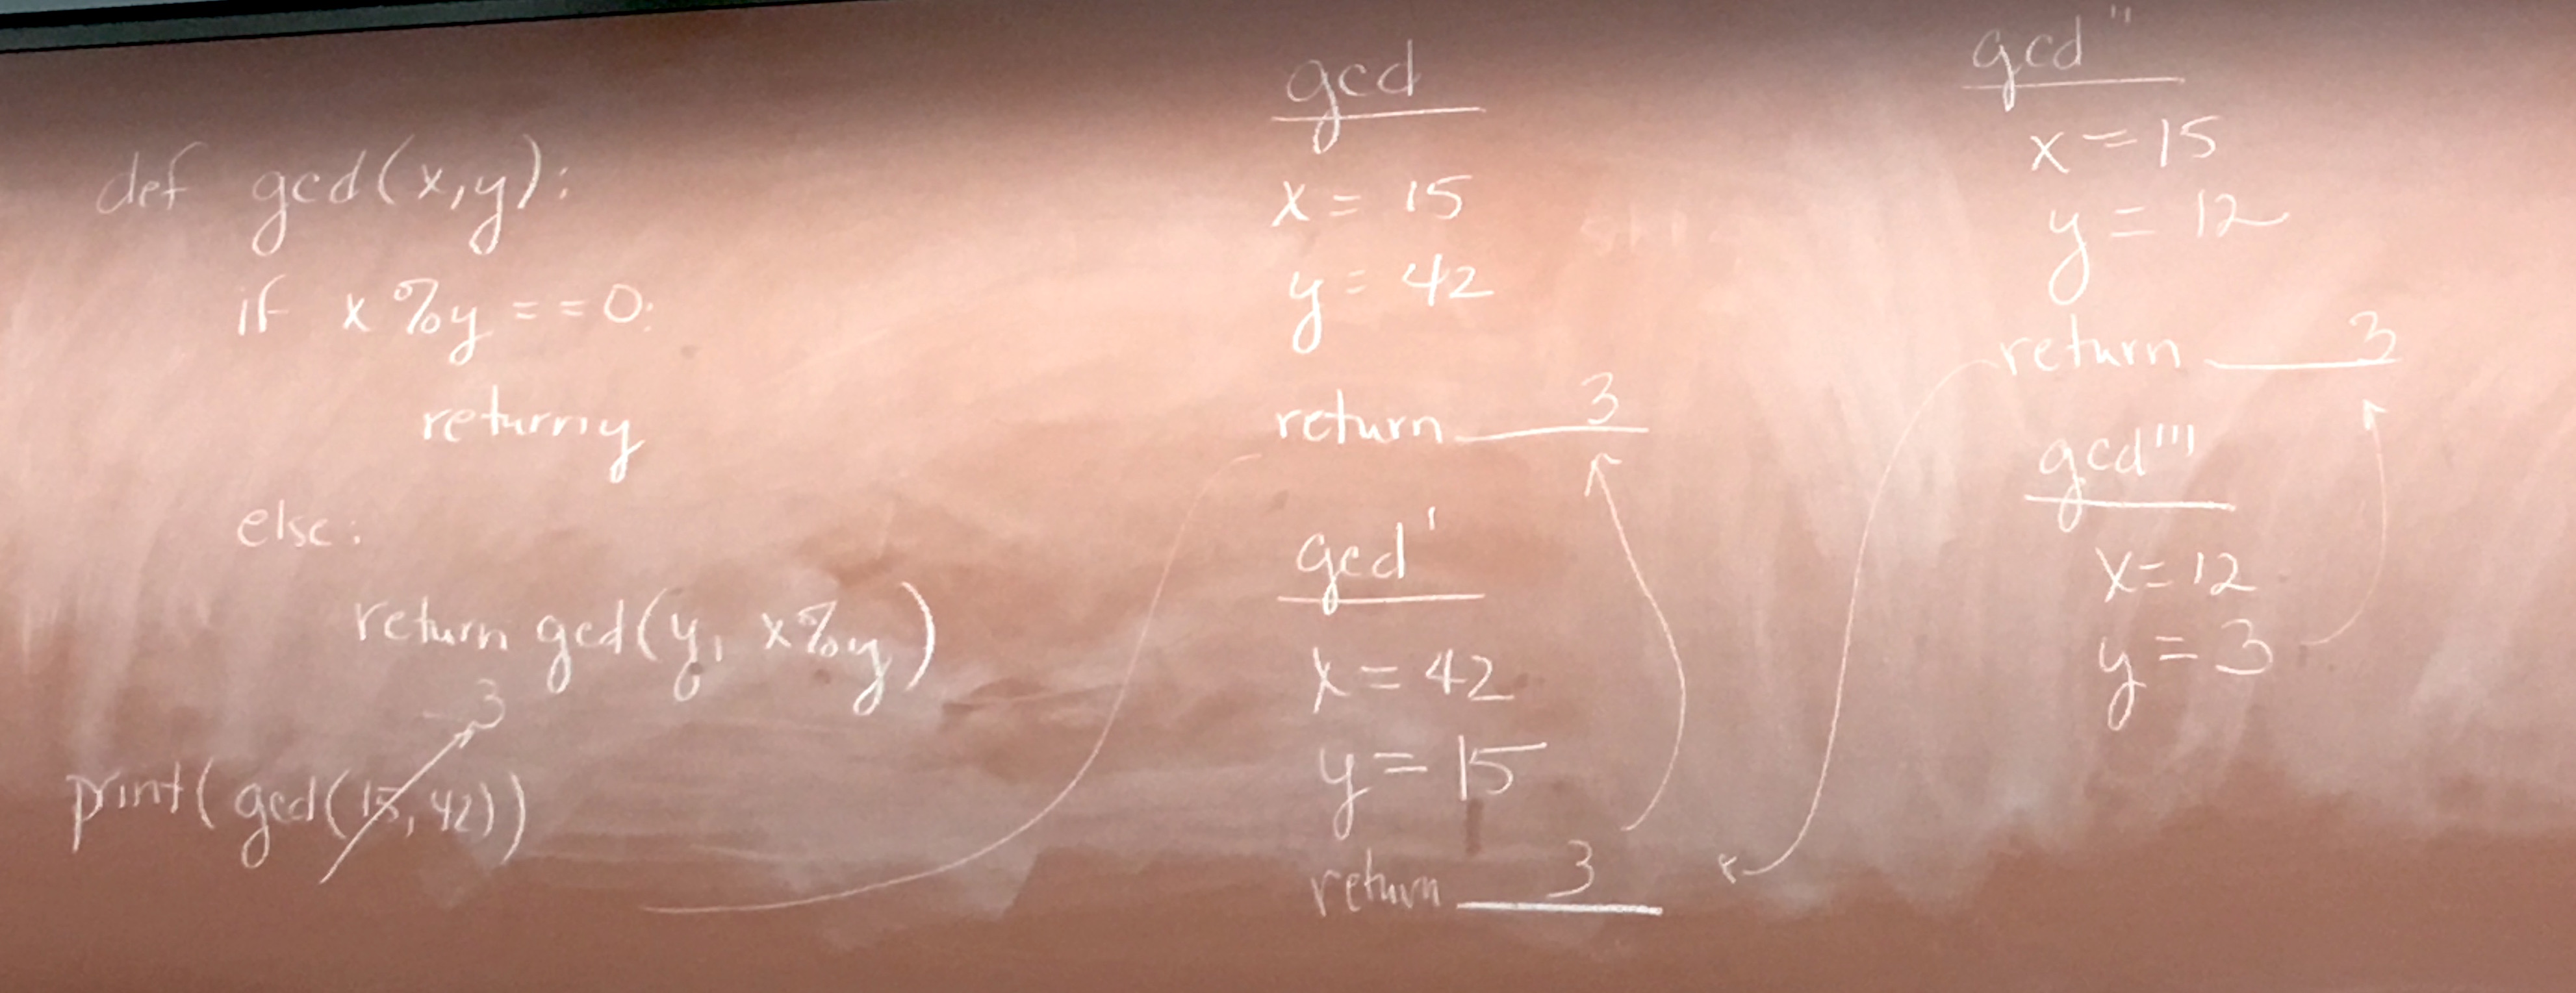 def gcd(x,y):
if x%y==0:
return y
else:
return gcd(y, x%y)
3
print(gcd(15,42))
gcd
x = 15
y = 42
return 3
gcd'
x = 42
y = 15
return 3
gcd''
x = 15
y = 12
return 3
gcd'''
x = 12
y = 3